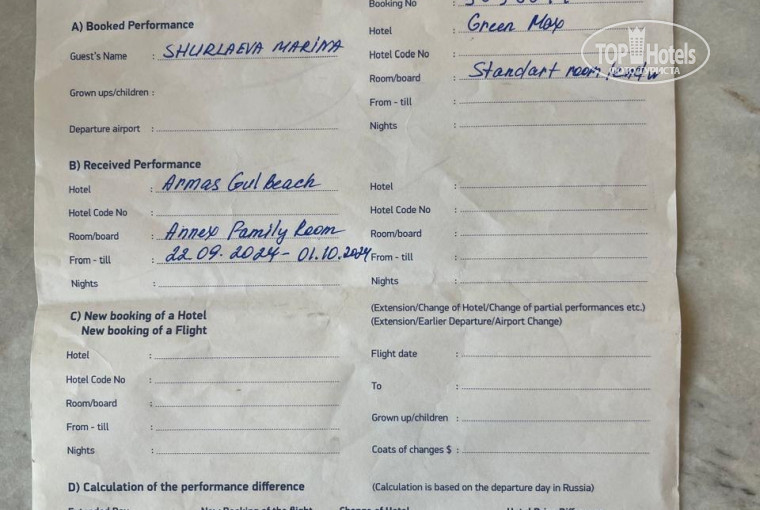 Booking No :
A) Booked Performance
Hotel : Green Max
Guest's Name : SHURLAEVA MARINA
Hotel Code No :
Room/board : Standart room
Grown ups/children :
From - till :
Departure airport :
Nights :
B) Received Performance
Hotel : Armas Gul Beach
Hotel :
Hotel Code No :
Hotel Code No :
Room/board : Annex Family Room
Room/board :
From - till : 22.09.2024 - 01.10.2024
From - till :
Nights :
Nights :
C) New booking of a Hotel
New booking of a Flight
(Extension/Change of Hotel/Change of partial performances etc.)
(Extension/Earlier Departure/Airport Change)
Hotel :
Flight date :
Hotel Code No :
To :
Room/board :
From - till :
Grown up/children :
Nights :
Coats of changes $ :
D) Calculation of the performance difference
(Calculation is based on the departure day in Russia)
TOP Hotels